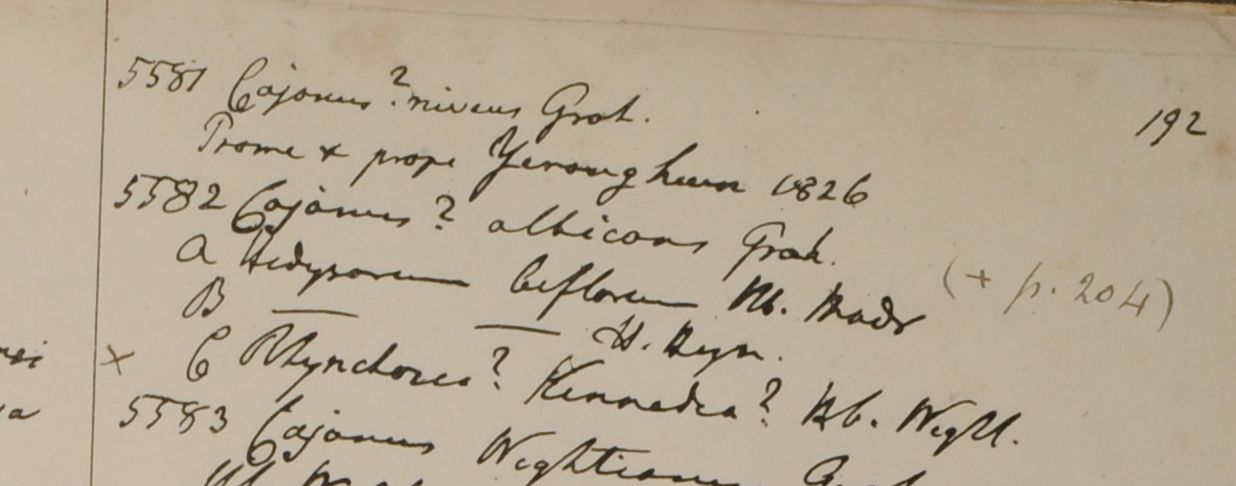 192
5581 Cajanus? niveus Grah.
Prome & prope Yenanghuen 1826
5582 Cajanus? albicans Grah.
(+ p. 204)
a Hedysarum biflorum Hb. Madr
B — — H. Heyn.
× C Rhynchosia? Kennedia? Hb. Wight.
5583 Cajanus Wightianus